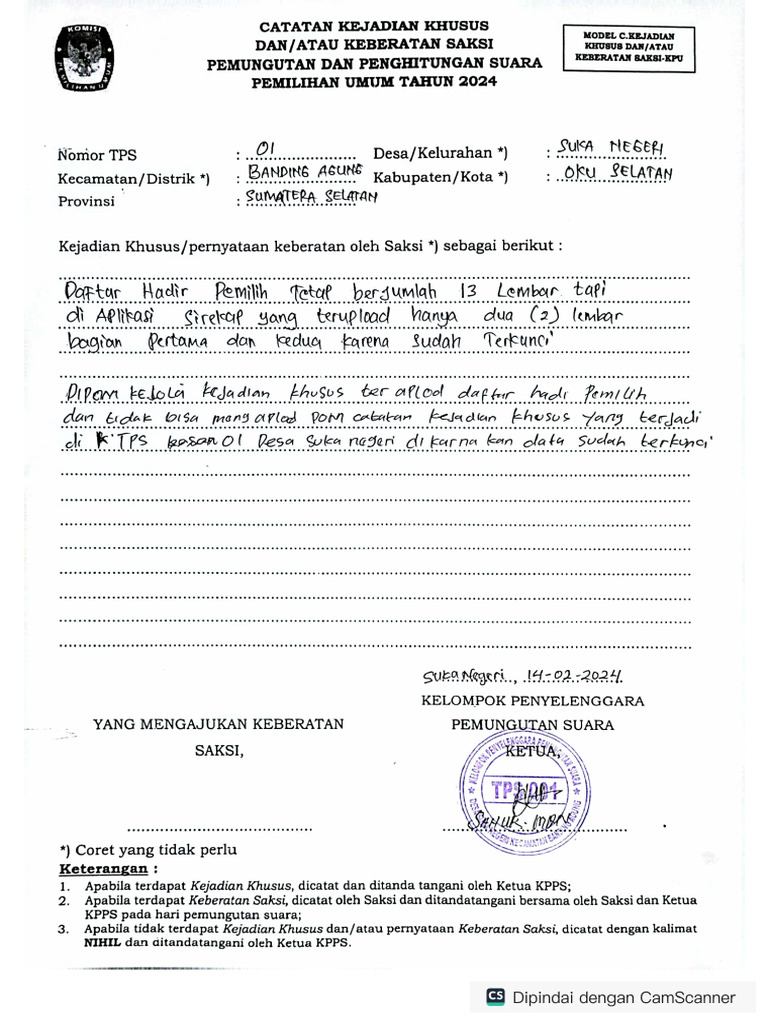 KOMISI
PEMILIHAN UMUM
CATATAN KEJADIAN KHUSUS
DAN/ATAU KEBERATAN SAKSI
PEMUNGUTAN DAN PENGHITUNGAN SUARA
PEMILIHAN UMUM TAHUN 2024
MODEL C.KEJADIAN
KHUSUS DAN/ATAU
KEBERATAN SAKSI-KPU
Nomor TPS : 01 Desa/Kelurahan *) : SUKA NEGERI
Kecamatan/Distrik *) : BANDING AGUNG Kabupaten/Kota *) : OKU SELATAN
Provinsi : SUMATERA SELATAN
Kejadian Khusus/pernyataan keberatan oleh Saksi *) sebagai berikut :
Daftar Hadir Pemilih Tetap berjumlah 13 Lembar tapi
di Aplikasi Sirekap yang terupload hanya dua (2) lembar
bagian Pertama dan kedua karena sudah Terkunci
Dipom kelola kejadian khusus ter aplod daftar hadi Pemilih
dan tidak bisa mengaplod pom catatan kejadian khusus yang terjadi
di TPS 01 Desa Suka negeri di karna kan data sudah terkunci
Suka Negeri, 14-02-2024
KELOMPOK PENYELENGGARA
YANG MENGAJUKAN KEBERATAN PEMUNGUTAN SUARA
SAKSI, KETUA,
KELOMPOK PENYELENGGARA PEMUNGUTAN SUARA
TPS 001
*) Coret yang tidak perlu
Keterangan :
1. Apabila terdapat Kejadian Khusus, dicatat dan ditanda tangani oleh Ketua KPPS;
2. Apabila terdapat Keberatan Saksi, dicatat oleh Saksi dan ditandatangani bersama oleh Saksi dan Ketua
KPPS pada hari pemungutan suara;
3. Apabila tidak terdapat Kejadian Khusus dan/atau pernyataan Keberatan Saksi, dicatat dengan kalimat
NIHIL dan ditandatangani oleh Ketua KPPS.
CS Dipindai dengan CamScanner